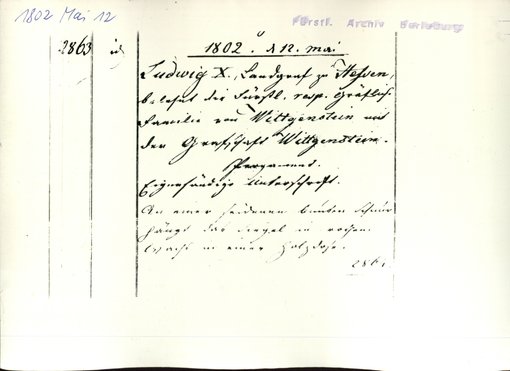 1802 Mai 12
Fürstl. Archiv Berleburg
2863
1802. d 12. Mai
Ludwig X., Landgraf zu Hessen,
belehnt die Fürstl. resp. Gräflich
Familie von Wittgenstein mit
der Grafschaft Wittgenstein.
Pergament.
Eigenhändige Unterschrift.
An einer seidenen bunten Schnur
hängt das Siegel in rothem
Wachs in einer Holzdose.